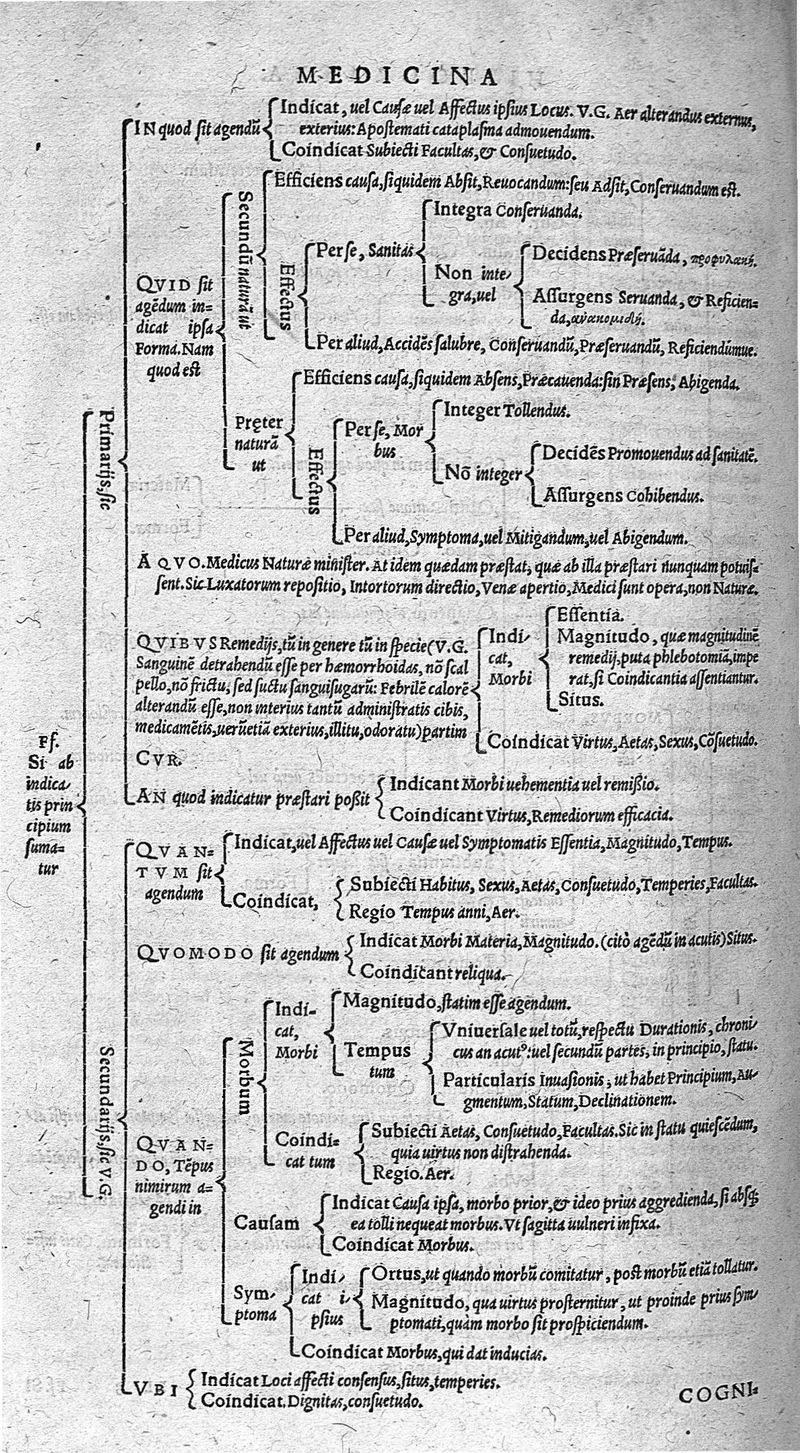 MEDICINA
Ff.
Si ab
indica-
tis prin
cipium
suma-
tur
Primarijs, sic
IN quod sit agendū
Indicat, uel Causæ uel Affectus ipsius Locus. V.G. Aer alterandus externus,
exterius: Apostemati cataplasma admouendum.
Coindicat Subiecti Facultas, & Consuetudo.
QVID sit
agēdum in-
dicat ipsa
Forma. Nam
quod est
Secundū naturā ut
Efficiens causa, siquidem Absit, Reuocandum: seu Adsit, Conseruandum est.
Effectus
Per se, Sanitas
Integra Conseruanda.
Non inte-
gra, uel
Decidens Præseruāda, προφυλακή.
Assurgens Seruanda, & Reficien-
da, ἀνακομιδή.
Per aliud, Accidēs salubre, Conseruandū, Præseruandū, Reficiendūmue.
Pręter
naturā
ut
Efficiens causa, siquidem Absens, Præcauenda: sin Præsens, Abigenda.
Effectus
Per se, Mor
bus
Integer Tollendus.
Nō integer
Decidēs Promouendus ad sanitatē.
Assurgens Cohibendus.
Per aliud, Symptoma, uel Mitigandum, uel Abigendum.
A QVO. Medicus Naturæ minister. At idem quædam præstat, quæ ab illa præstari nunquam potuis-
sent. Sic Luxatorum repositio, Intortorum directio, Venæ apertio, Medici sunt opera, non Naturæ.
QVIBVS Remedijs, tū in genere tū in specie (V.G.
Sanguinē detrahendū esse per hæmorrhoidas, nō scal
pello, nō frictu, sed suctu sanguisugarū: Febrilē calorē
alterandū esse, non interius tantū administratis cibis,
medicamētis, uerūetiā exterius, illitu, odoratu) partim
Indi-
cat,
Morbi
Essentia.
Magnitudo, quæ magnitudinē
remedij, puta phlebotomiā, impe
rat, si Coindicantia assentiantur.
Situs.
Coindicat Virtus, Aetas, Sexus, Cōsuetudo.
CVR.
AN quod indicatur præstari possit
Indicant Morbi uehementia uel remissio.
Coindicant Virtus, Remediorum efficacia.
Secundarijs, sic V.G.
QVAN-
TVM sit
agendum
Indicat, uel Affectus uel Causæ uel Symptomatis Essentia, Magnitudo, Tempus.
Coindicat,
Subiecti Habitus, Sexus, Aetas, Consuetudo, Temperies, Facultas.
Regio Tempus anni, Aer.
QVOMODO sit agendum
Indicat Morbi Materia, Magnitudo. (citò agēdū in acutis) Situs.
Coindicant reliqua.
QVAN-
DO, Tēpus
nimirum a-
gendi in
Morbum
Indi-
cat,
Morbi
Magnitudo, statim esse agendum.
Tempus
tum
Vniuersale uel totū, respectu Durationis, chroni-
cus an acutꝰ: uel secundū partes, in principio, statu.
Particularis Inuasionis, ut habet Principium, Au-
gmentum, Statum, Declinationem.
Coindi-
cat tum
Subiecti Aetas, Consuetudo, Facultas. Sic in statu quiescēdum,
quia uirtus non distrahenda.
Regio. Aer.
Causam
Indicat Causa ipsa, morbo prior, & ideo prius aggredienda, si absq;
ea tolli nequeat morbus. Vt sagitta uulneri infixa.
Coindicat Morbus.
Sym-
ptoma
Indi-
cat i-
psius
Ortus, ut quando morbū comitatur, post morbū etiā tollatur.
Magnitudo, qua uirtus prosternitur, ut proinde prius sym
ptomati, quàm morbo sit prospiciendum.
Coindicat Morbus, qui dat inducias.
VBI
Indicat Loci affecti consensus, situs, temperies.
Coindicat. Dignitas, consuetudo.
COGNI-